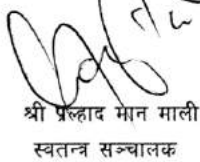 श्री प्रल्हाद मान माली
स्वतन्त्र सञ्चालक